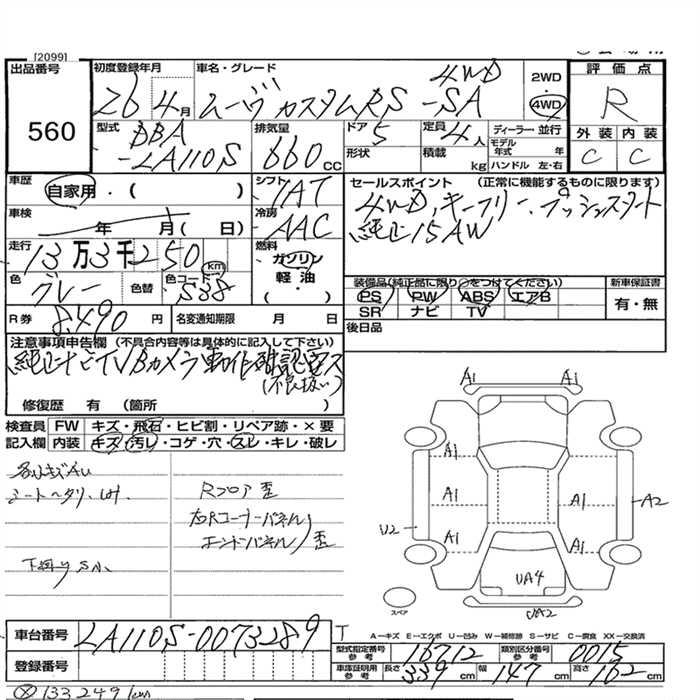 [2099]
出品番号
560
初度登録年月
26年4月
車名・グレード
ムーヴ カスタムRS-SA
4WD
2WD
4WD
評価点
R
外装 内装
C C
型式
DBA
-LA110S
排気量
660 CC
ドア 5
形状
定員 4人
積載 kg
ディーラー・並行
モデル年式 年
ハンドル 左・右
車歴
自家用・( )
シフト
IAT
車検
年 月( 日)
冷房
AAC
走行
13万3千250 km
燃料
ガソリン
軽油
( ・ )
色
グレー
色替
色コード
S38
R券
8,490円
名変通知期限 月 日
セールスポイント (正常に機能するものに限ります)
4WD、キーフリー、プッシュスタート
純正15AW
装備品(純正品に限り○をつけてください)
PS PW ABS エアB
SR ナビ TV
新車保証書
有・無
後日品
注意事項申告欄 (不具合内容等は具体的に記入して下さい)
純正ナビTV Bカメラ動作確認
修復歴 有 (箇所 )
検査員
記入欄
FW キズ・飛石・ヒビ割・リペア跡・×要
内装 キズ・汚レ・コゲ・穴・スレ・キレ・破レ
各ひきずAU
シートヘタリ、
下廻りS小
Rフロア歪
右Rコーナーパネル
エンドパネル 歪
A1 A1
A1
A1 A1
A1 A1
A2
U2
UA4
UA2
スペア
車台番号
LA110S-0073289
登録番号
T
A－キズ E－エクボ U－凹み W－補修跡 S－サビ C－腐食 XX－交換済
型式指定番号
参考
16712
類別区分番号
参考
0015
車庫証明用
参考
長さ 339 cm
幅 147 cm
高さ 162 cm
133249km